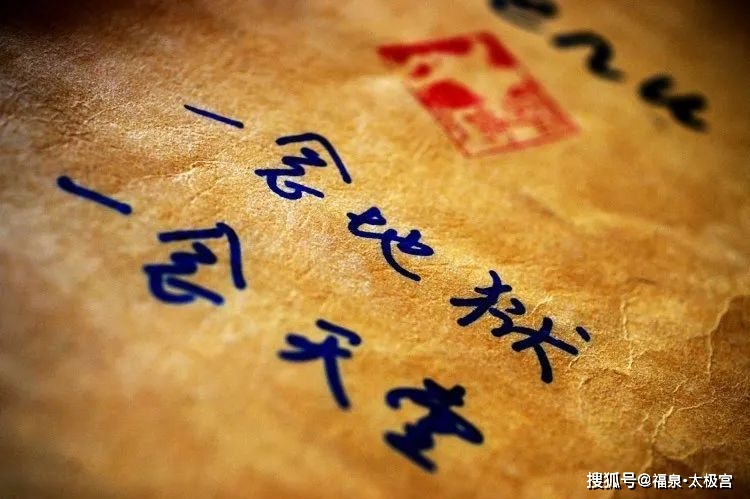 一念地獄
一念天堂
搜狐号@福泉·太极宫